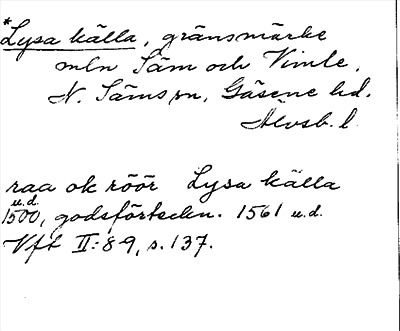 *Lysa källa, gränsmärke
mln Säm och Vimle,
N. Säms sn, Gäsene hd.
Älvsb. l.
raa ok röör Lysa källa
u.d.
1500, godsförteckn. 1561 u.d.
Vft II:8-9, s. 137.